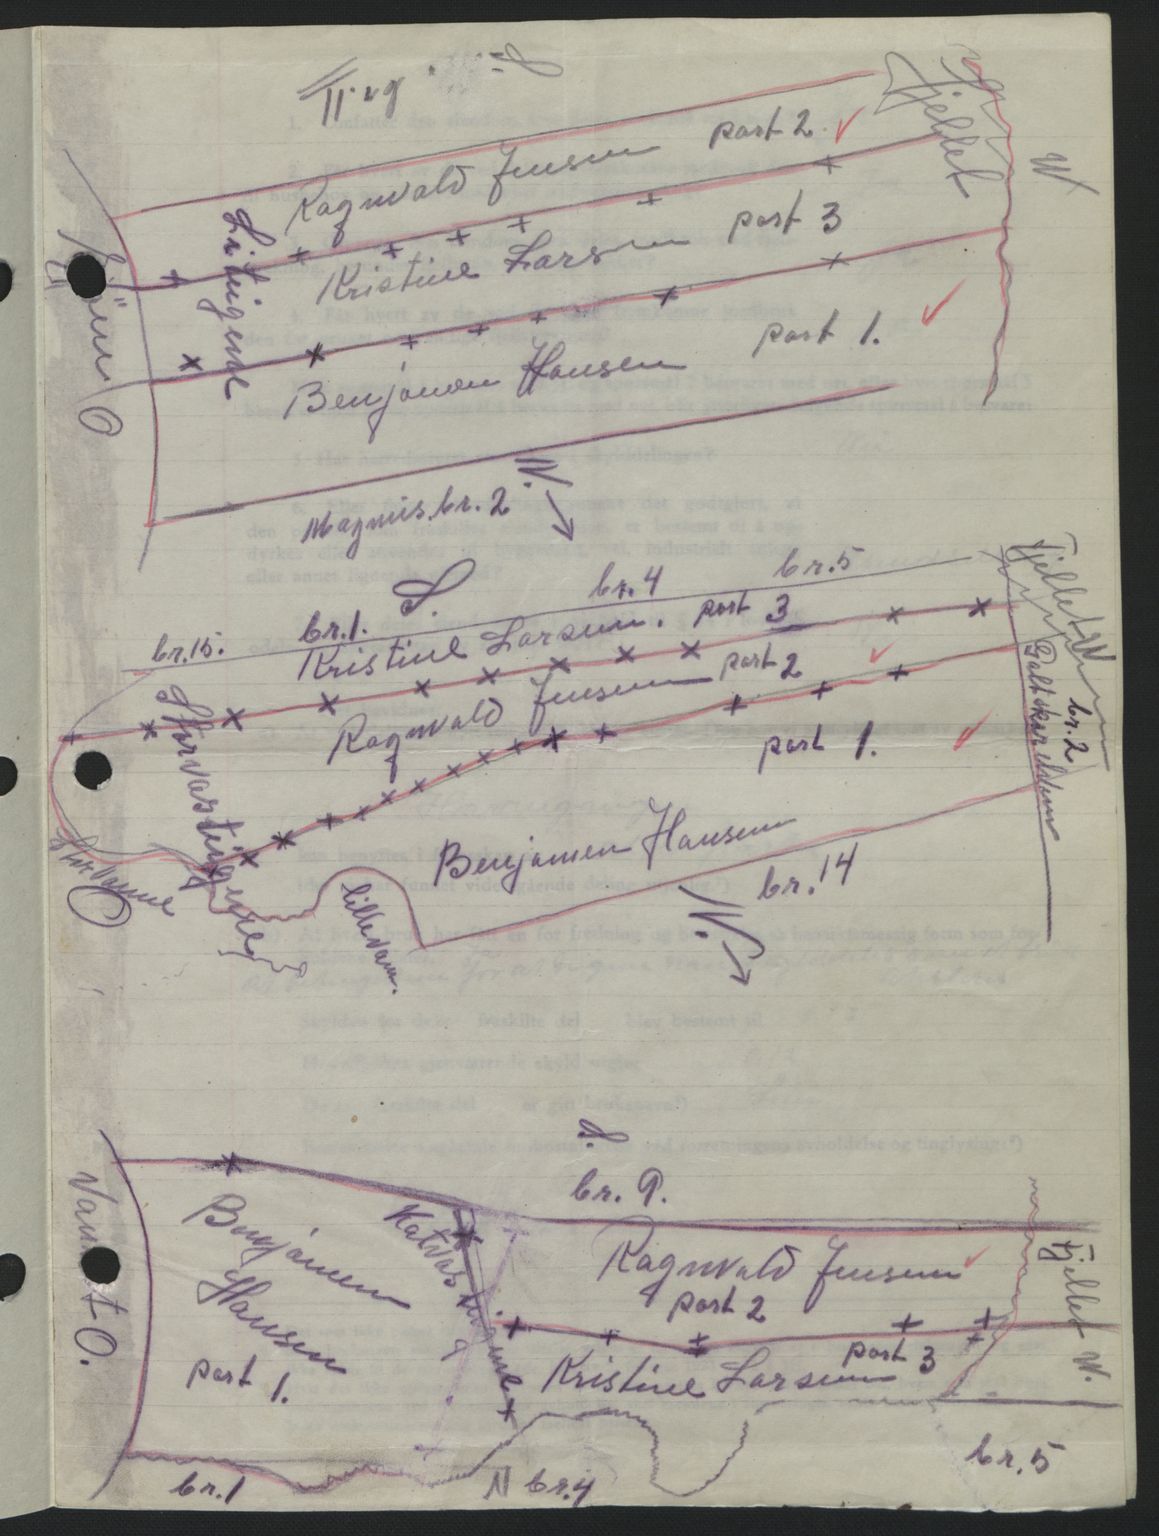 S.
Ragnvald Jensen part 2
Fjellet
W
Kristine Larsen part 3
Litjgene
Sjöen O
Benjamen Hansen part 1.
Magnus. br. 2
N.
br. 15.
br. 1.
S.
br. 4
br. 5
Fjellet W
Kristine Larsen. part 3
Ragnvald Jensen part 2
part 1.
br. 2
Benjamen Hansen
br. 14
lillevann.
N.
S.
br. 9.
Vannet O.
Benjamen
Hansen
part 1.
Ragnvald Jensen
part 2
Fjellet W.
Kristine Larsen part 3
br. 1
N br. 4
br. 5